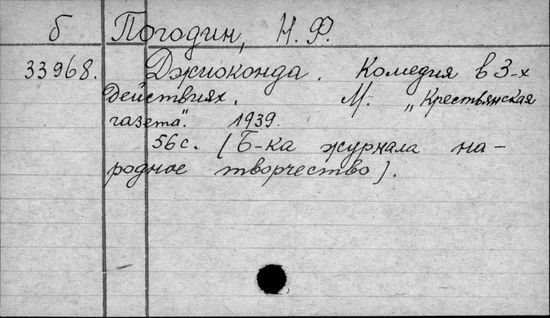 б Погодин, Н. Ф.
33968. Джиоконда. Комедия в 3-х
действиях. М. „Крестьянская
газета". 1939.
56 с. [Б-ка журнала на-
родное творчество].